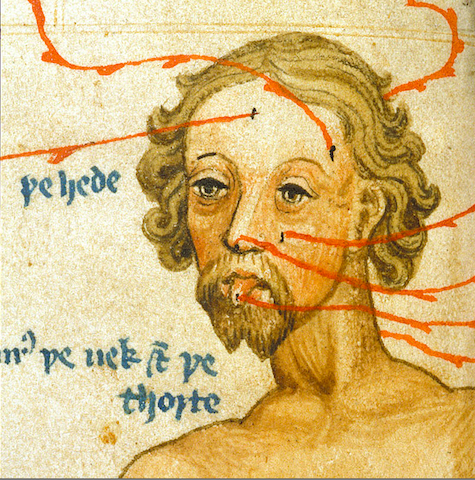 þe hede
þe nek & þe
thorte